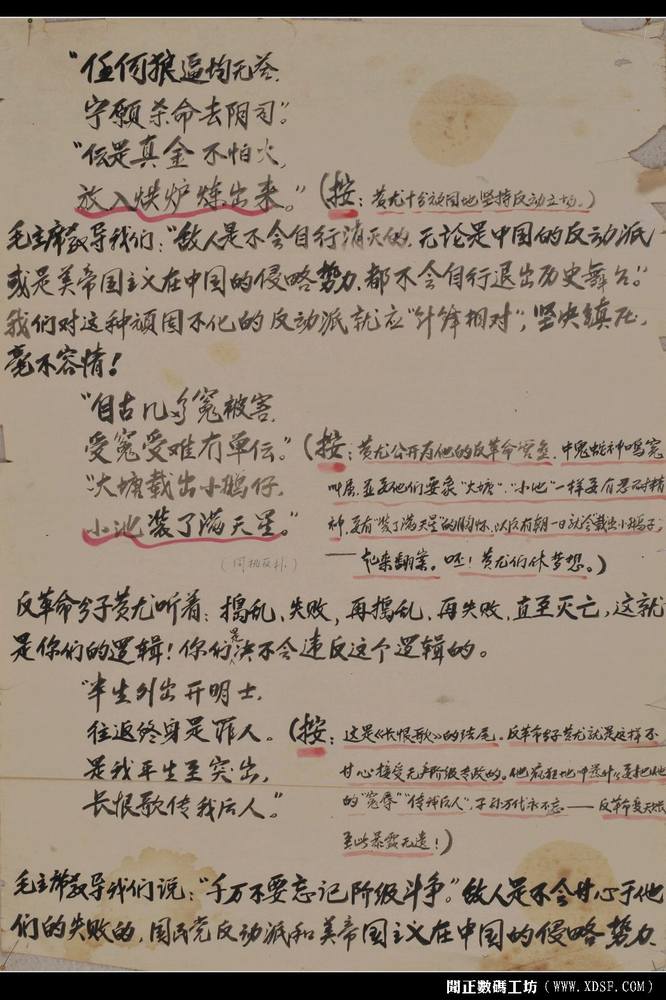 “任何狼逼均无答,
宁愿杀命去阴司”。
“伝是真金不怕火,
放入烘炉炼出来。”(按:黄尤十分顽固地坚持反动立场。)
毛主席教导我们:“敌人是不会自行消灭的,无论是中国的反动派
或是美帝国主义在中国的侵略势力,都不会自行退出历史舞台。”
我们对这种顽固不化的反动派就应“针锋相对”,坚决镇压,
毫不容情!
“自古几多冤被害,
受冤受难冇单伝。”(按:黄尤公开为他的反革命 中鬼蛇神鸣冤
“大塘载出小鹅仔, 叫屈,并要他们要象“大塘”、“小池”一样要有忍耐精
小池装了满天星。” 神,要有“装了满天星”的胸怀,以后有朝一日就会载出小鹅子,
—— 起来翻案。呸!黄尤们休梦想。)
反革命分子黄尤听着:捣乱、失败,再捣乱、再失败,直至灭亡,这就
是你们的逻辑!你们是决不会违反这个逻辑的。
“半生列出开明士,
往返终身是罪人。(按:这是《长恨歌》的结尾。反革命分子黄尤就是这样不
是我平生至突出, 甘心接受无产阶级专政的。他疯狂地 要把他
长恨歌传我后人。” 的“冤辱”“传我后人”,子孙万代永不忘——反革命变天账
至此暴露无遗!)
毛主席教导我们说:“千万不要忘记阶级斗争。”敌人是不会甘心于他
们的失败的,国民党反动派和美帝国主义在中国的侵略势力,
闻正數碼工坊(www.XDSF.com)